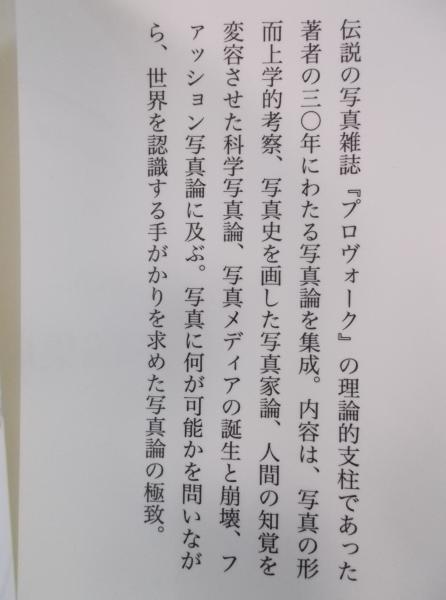 伝説の写真雑誌『プロヴォーク』の理論的支柱であった
著者の三〇年にわたる写真論を集成。内容は、写真の形
而上学的考察、写真史を画した写真家論、人間の知覚を
変容させた科学写真論、写真メディアの誕生と崩壊、フ
ァッション写真論に及ぶ。写真に何が可能かを問いなが
ら、世界を認識する手がかりを求めた写真論の極致。